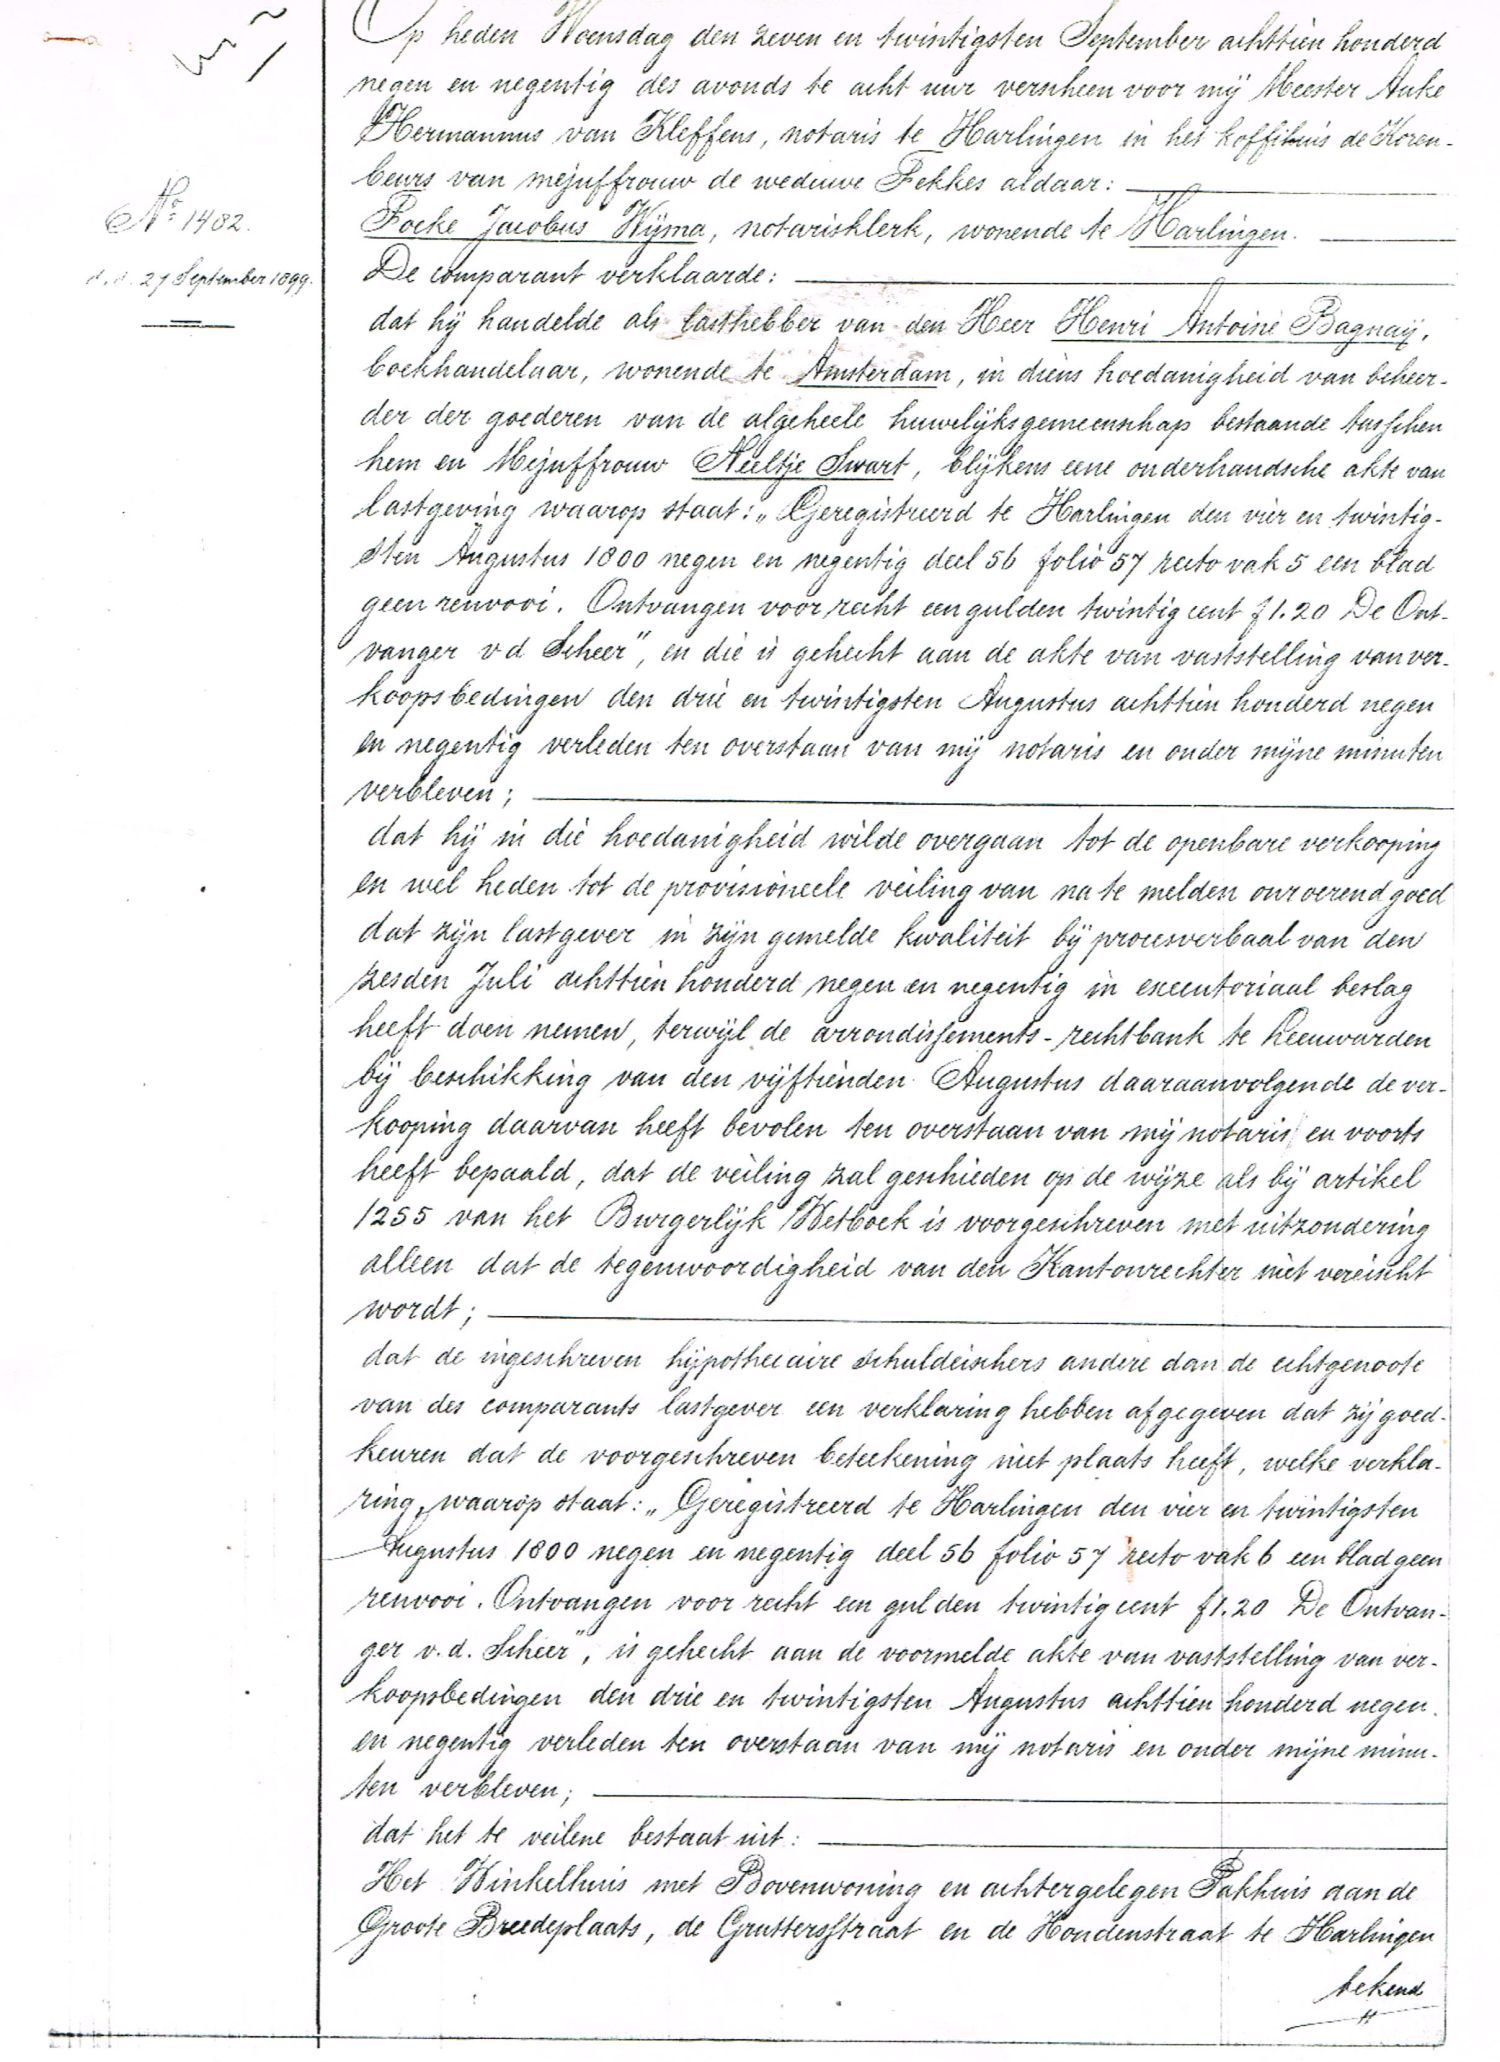 Op heden Woensdag den zeven en twintigsten September achttien honderd
negen en negentig des avonds te acht uur verscheen voor mij Meester Anke
Hermannus van Kleffens, notaris te Harlingen in het koffihuis de Koren-
beurs van mejuffrouw de weduwe Fekkes aldaar:
Focke Jacobus Wijma, notarisklerk, wonende te Harlingen.
De comparant verklaarde:
dat hij handelde als lasthebber van den Heer Henri Antoine Bagnaij,
boekhandelaar, wonende te Amsterdam, in diens hoedanigheid van beheer-
der der goederen van de algeheele huwelijksgemeenschap bestaande tusschen
hem en Mejuffrouw Neeltje Swart, blijkens eene onderhandsche akte van
lastgeving waarop staat: „Geregistreerd te Harlingen den vier en twintig-
sten Augustus 1800 negen en negentig deel 56 folio 57 recto vak 5 een blad
geen renvooi. Ontvangen voor recht een gulden twintig cent f 1.20 De Ont-
vanger v d Scheer", en die is gehecht aan de akte van vaststelling van ver-
koopsbedingen den drie en twintigsten Augustus achttien honderd negen
en negentig verleden ten overstaan van mij notaris en onder mijne minuten
verbleven;
dat hij in die hoedanigheid wilde overgaan tot de openbare verkooping
en wel heden tot de provisioneele veiling van na te melden onroerend goed
dat zijn lastgever in zijn gemelde kwaliteit bij procesverbaal van den
zesden Juli achttien honderd negen en negentig in executoriaal beslag
heeft doen nemen, terwijl de arrondissements-rechtbank te Leeuwarden
bij beschikking van den vijftienden Augustus daaraanvolgende de ver-
kooping daarvan heeft bevolen ten overstaan van mij notaris en voorts
heeft bepaald, dat de veiling zal geschieden op de wijze als bij artikel
1255 van het Burgerlijk Wetboek is voorgeschreven met uitzondering
alleen dat de tegenwoordigheid van den Kantonrechter niet vereischt
wordt;
dat de ingeschreven hijpothecaire schuldeischers andere dan de echtgenoote
van des comparants lastgever een verklaring hebben afgegeven dat zij goed-
keuren dat de voorgeschreven beteekening niet plaats heeft, welke verkla-
ring, waarop staat: „Geregistreerd te Harlingen den vier en twintigsten
Augustus 1800 negen en negentig deel 56 folio 57 recto vak 6 een blad geen
renvooi. Ontvangen voor recht een gulden twintig cent f 1.20 De Ontvan-
ger v.d. Scheer", is gehecht aan de voormelde akte van vaststelling van ver-
koopsbedingen den drie en twintigsten Augustus achttien honderd negen
en negentig verleden ten overstaan van mij notaris en onder mijne minu-
ten verbleven;
dat het te veilene bestaat uit:
Het Winkelhuis met Bovenwoning en achtergelegen Pakhuis aan de
Groote Breedeplaats, de Gruttersstraat en de Hondenstraat te Harlingen
bekend
No. 1482.
d.d. 27 September 1899.